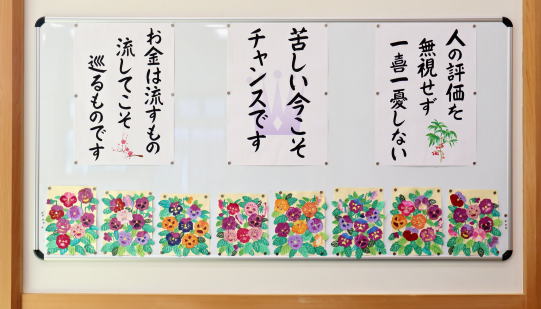 人の評価を
無視せず
一喜一憂しない
苦しい今こそ
チャンスです
お金は流すもの
流してこそ
巡るものです